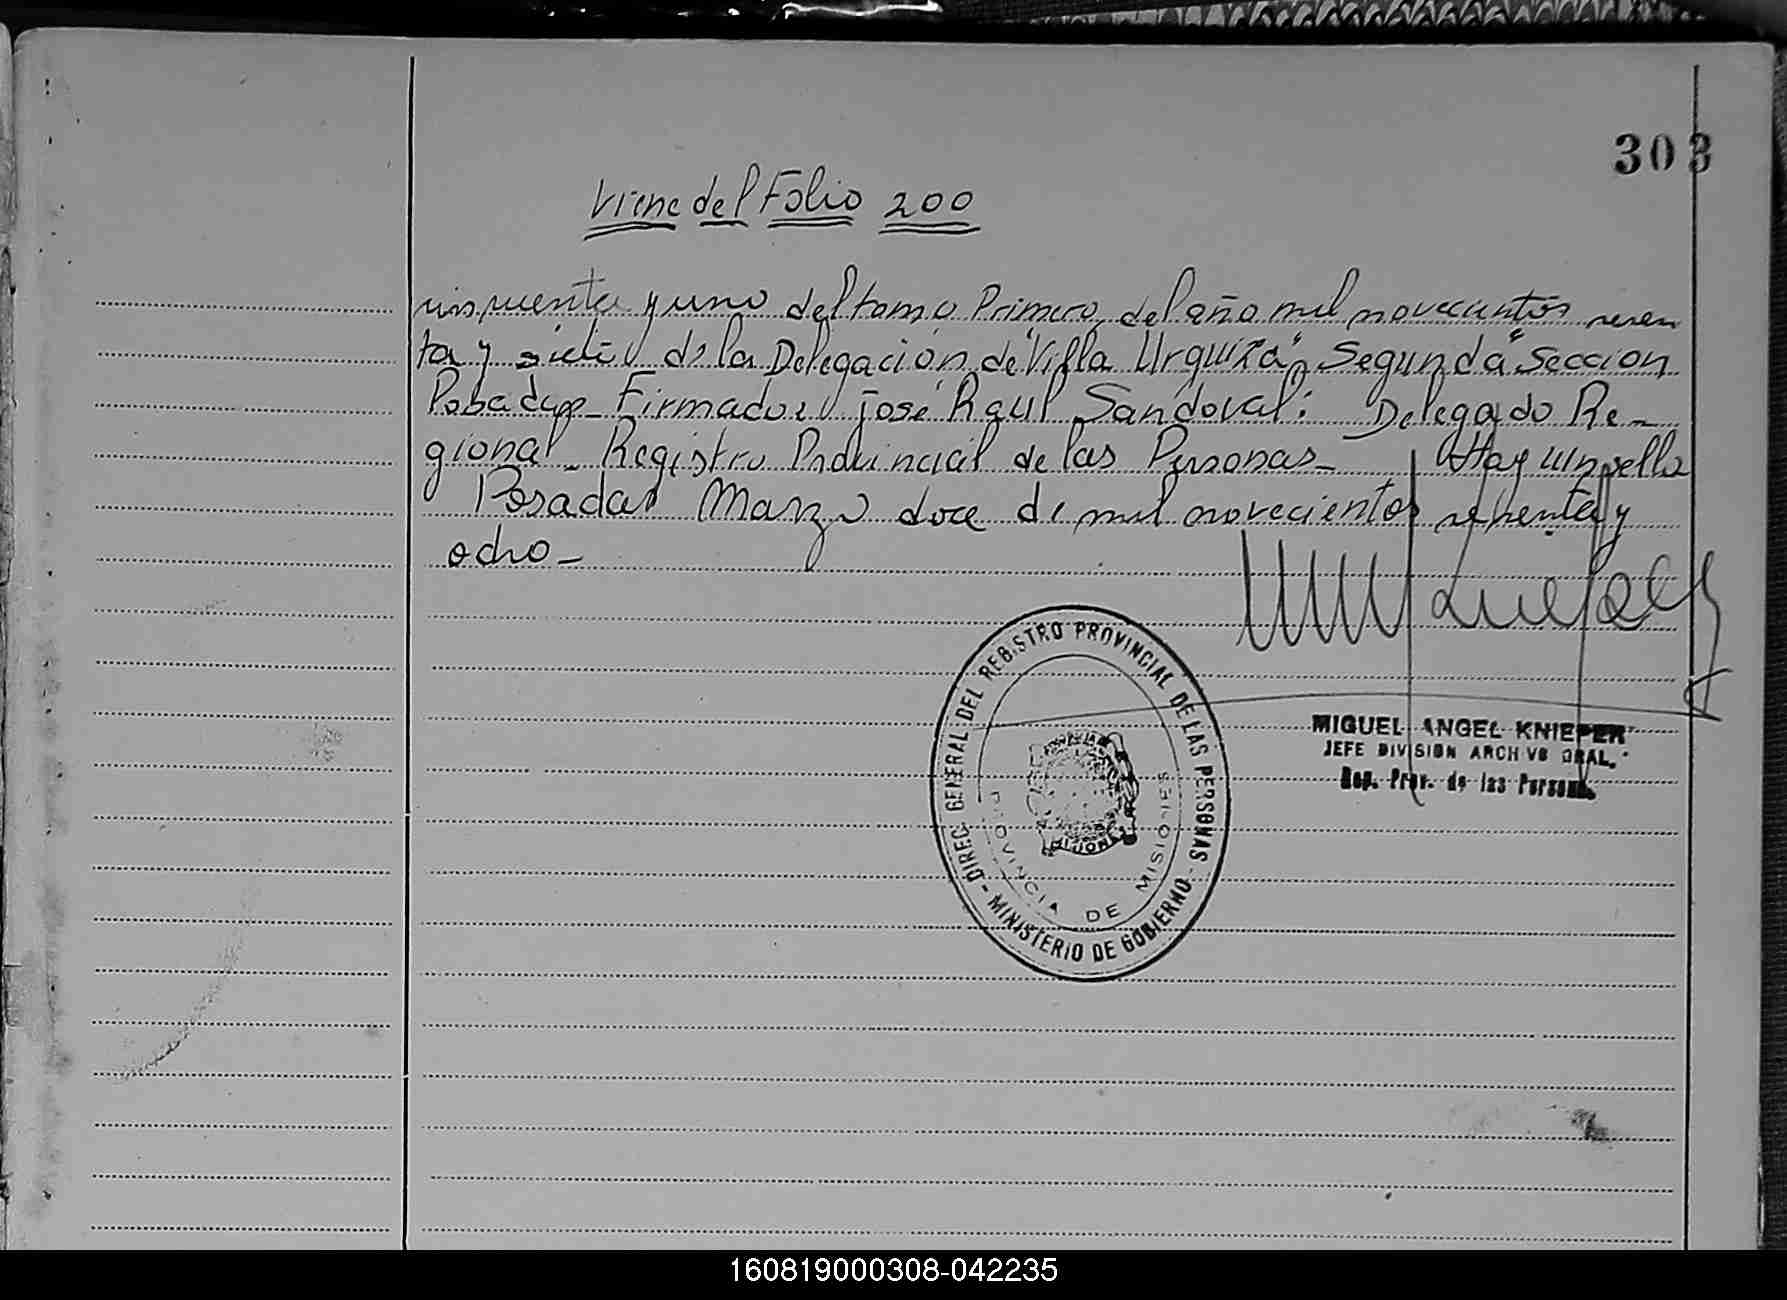 303
Viene del Folio 200
cinquenta y uno del tomo Primero, del año mil novecientos sesen
ta y siete de la Delegación de "Villa Urquiza", Segunda "Sección
Posadas- Firmado: José Raúl Sandoval: Delegado Re-
gional- Registro Provincial de las Personas- Hay un sello
Posadas Marzo doce de mil novecientos setenta y
ocho-
DIREC. GENERAL DEL REGISTRO PROVINCIAL DE LAS PERSONAS - MINISTERIO DE GOBIERNO -
PROVINCIA DE MISIONES
MIGUEL ANGEL KNIEPER
JEFE DIVISION ARCHIVO GRAL.
Reg. Prov. de las Personas
160819000308-042235